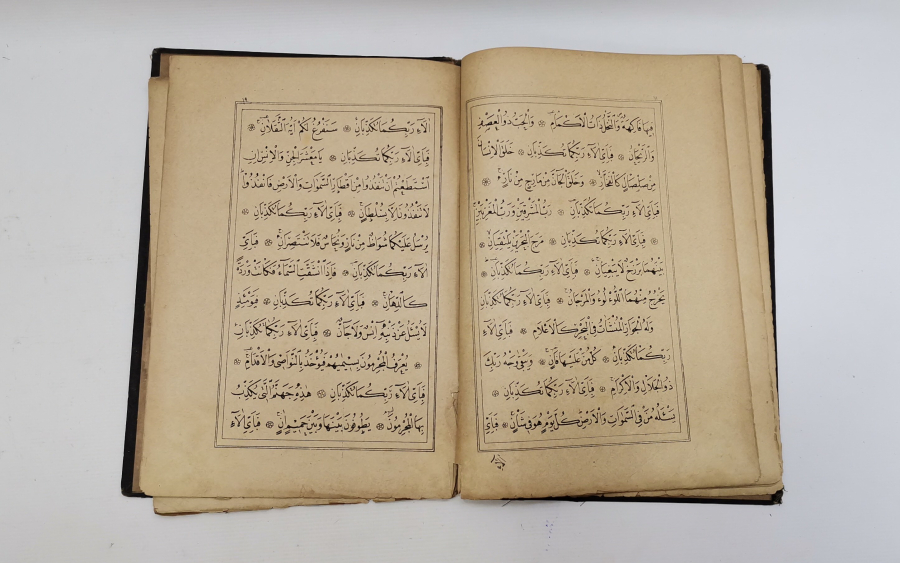 فِيهَا فَاكِهَةٌ وَالنَّخْلُ ذَاتُ الْاَكْمَامِ ۞ وَالْحَبُّ ذُو الْعَصْفِ
وَالرَّيْحَانُ ۞ فَبِاَىِّ اٰلَاءِ رَبِّكُمَا تُكَذِّبَانِ ۞ خَلَقَ الْاِنْسَانَ
مِنْ صَلْصَالٍ كَالْفَخَّارِ ۞ وَخَلَقَ الْجَانَّ مِنْ مَارِجٍ مِنْ نَارٍ ۞
فَبِاَىِّ اٰلَاءِ رَبِّكُمَا تُكَذِّبَانِ ۞ رَبُّ الْمَشْرِقَيْنِ وَرَبُّ الْمَغْرِبَيْنِ
۞ فَبِاَىِّ اٰلَاءِ رَبِّكُمَا تُكَذِّبَانِ ۞ مَرَجَ الْبَحْرَيْنِ يَلْتَقِيَانِ ۞
بَيْنَهُمَا بَرْزَخٌ لَا يَبْغِيَانِ ۞ فَبِاَىِّ اٰلَاءِ رَبِّكُمَا تُكَذِّبَانِ ۞
يَخْرُجُ مِنْهُمَا اللُّؤْلُؤُ وَالْمَرْجَانُ ۞ فَبِاَىِّ اٰلَاءِ رَبِّكُمَا تُكَذِّبَانِ
وَلَهُ الْجَوَارِ الْمُنْشَاٰتُ فِى الْبَحْرِ كَالْاَعْلَامِ ۞ فَبِاَىِّ اٰلَاءِ
رَبِّكُمَا تُكَذِّبَانِ ۞ كُلُّ مَنْ عَلَيْهَا فَانٍ ۞ وَيَبْقٰى وَجْهُ رَبِّكَ
ذُو الْجَلَالِ وَالْاِكْرَامِ ۞ فَبِاَىِّ اٰلَاءِ رَبِّكُمَا تُكَذِّبَانِ ۞
يَسْـَٔلُهُ مَنْ فِى السَّمٰوَاتِ وَالْاَرْضِ كُلَّ يَوْمٍ هُوَ فِى شَاْنٍ ۞ فَبِاَىِّ
اٰلَاءِ رَبِّكُمَا تُكَذِّبَانِ ۞ سَنَفْرُغُ لَكُمْ اَيُّهَ الثَّقَلَانِ ۞
فَبِاَىِّ اٰلَاءِ رَبِّكُمَا تُكَذِّبَانِ ۞ يَا مَعْشَرَ الْجِنِّ وَالْاِنْسِ اِنِ
اسْتَطَعْتُمْ اَنْ تَنْفُذُوا مِنْ اَقْطَارِ السَّمٰوَاتِ وَالْاَرْضِ فَانْفُذُوا
لَا تَنْفُذُونَ اِلَّا بِسُلْطَانٍ ۞ فَبِاَىِّ اٰلَاءِ رَبِّكُمَا تُكَذِّبَانِ ۞
يُرْسَلُ عَلَيْكُمَا شُوَاظٌ مِنْ نَارٍ وَنُحَاسٌ فَلَا تَنْتَصِرَانِ ۞ فَبِاَىِّ
اٰلَاءِ رَبِّكُمَا تُكَذِّبَانِ ۞ فَاِذَا انْشَقَّتِ السَّمَاءُ فَكَانَتْ وَرْدَةً
كَالدِّهَانِ ۞ فَبِاَىِّ اٰلَاءِ رَبِّكُمَا تُكَذِّبَانِ ۞ فَيَوْمَئِذٍ
لَا يُسْـَٔلُ عَنْ ذَنْبِهِ اِنْسٌ وَلَا جَانٌّ ۞ فَبِاَىِّ اٰلَاءِ رَبِّكُمَا تُكَذِّبَانِ
۞ يُعْرَفُ الْمُجْرِمُونَ بِسِيمٰيهُمْ فَيُؤْخَذُ بِالنَّوَاصِى وَالْاَقْدَامِ ۞
فَبِاَىِّ اٰلَاءِ رَبِّكُمَا تُكَذِّبَانِ ۞ هٰذِهِ جَهَنَّمُ الَّتِى يُكَذِّبُ
بِهَا الْمُجْرِمُونَ ۞ يَطُوفُونَ بَيْنَهَا وَبَيْنَ حَمِيمٍ اٰنٍ ۞ فَبِاَىِّ اٰلَاءِ